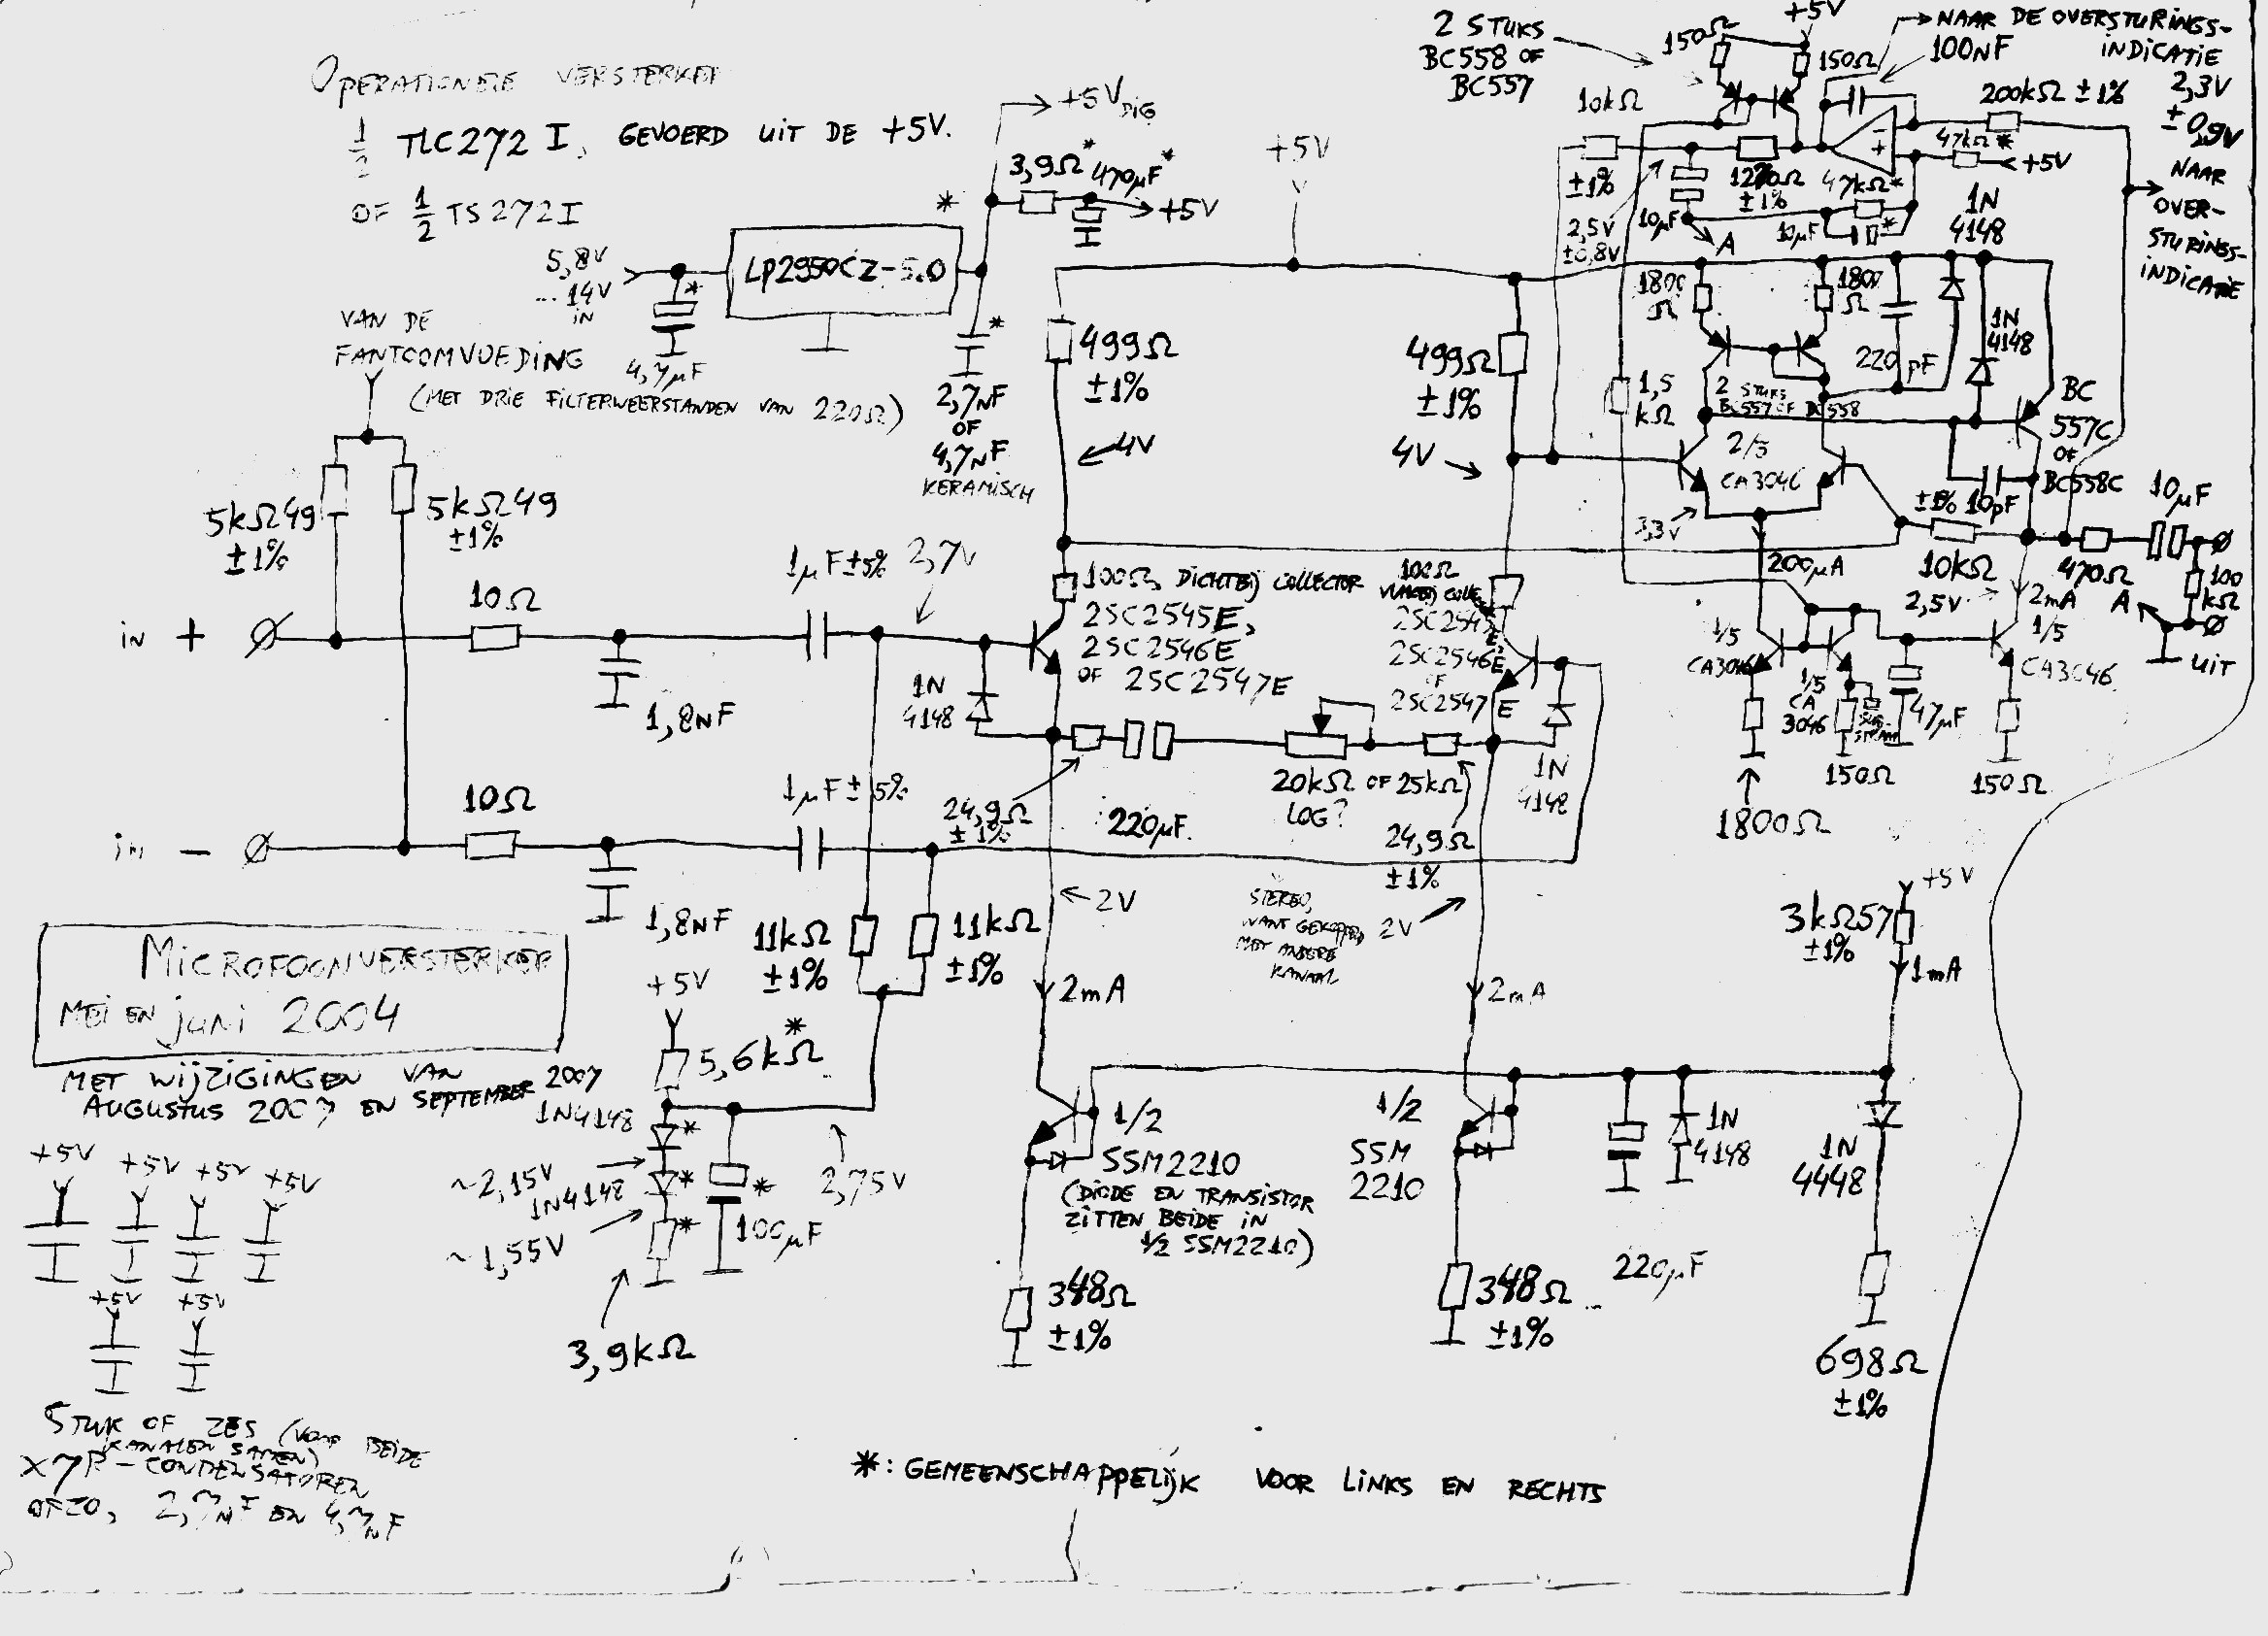 OPERATIONELE VERSTERKER
1/2 TLC272I, GEVOERD UIT DE +5V.
OF 1/2 TS272I
5,8V
... 14V
IN
4,7μF
*
LP2950CZ-5.0
+5V DIG
*
3,9Ω*
470μF*
+5V
*
2,7nF
OF
4,7nF
KERAMISCH
VAN DE
FANTOOMVOEDING
(MET DRIE FILTERWEERSTANDEN VAN 220Ω)
5kΩ49
±1%
5kΩ49
±1%
in +
10Ω
1,8nF
1μF±5%
2,7V
in −
10Ω
1,8nF
1μF±5%
11kΩ
±1%
11kΩ
±1%
+5V
499Ω
±1%
4V
100Ω, DICHTBIJ COLLECTOR
2SC2545E,
2SC2546E
OF 2SC2547E
1N
4148
24,9Ω
±1%
220μF
20kΩ OF 25kΩ
LOG?
24,9Ω
±1%
STEREO,
WANT GEKOPPELD
MET ANDERE
KANAAL
499Ω
±1%
4V
100Ω
2SC2545E
2SC2546E
OF
2SC2547E
1N
4148
2V
2mA
2V
2mA
2 STUKS
BC558 OF
BC557
150Ω
+5V
150Ω
NAAR DE OVERSTURINGS-
INDICATIE
100nF
200kΩ ±1%
2,3V
±0,9V
NAAR
OVER-
STURINGS-
INDICATIE
10kΩ
±1%
2,5V
±0,8V
10μF
A
1270Ω
±1%
47kΩ*
+5V
47kΩ*
10μF
*
1N
4148
1800
Ω
1800
Ω
220 pF
1N
4148
1,5
kΩ
2 STUKS
BC557 OF BC558
2/5
CA3046
3,3V
BC
557C
OF
BC558C
10pF
±1%
10kΩ
200μA
2,5V
2mA
470Ω
10μF
100
kΩ
A
UIT
1/5
CA3046
1/5
CA
3046
1/5
CA3046
47μF
1800Ω
150Ω
150Ω
+5V
3kΩ57
±1%
1mA
MICROFOONVERSTERKER
MEI EN juni 2004
MET WIJZIGINGEN VAN
AUGUSTUS 2007 EN SEPTEMBER 2007
+5V
5,6kΩ*
1N4148
*
~2,15V
1N4148
*
~1,55V
*
3,9kΩ
100μF
*
2,75V
1/2
SSM2210
(DIODE EN TRANSISTOR
ZITTEN BEIDE IN
1/2 SSM2210)
348Ω
±1%
1/2
SSM
2210
348Ω
±1%
220μF
1N
4148
1N
4448
698Ω
±1%
+5V +5V +5V +5V
+5V +5V
STUK OF ZES (VOOR BEIDE
KANALEN SAMEN)
X7R-CONDENSATOREN
OFZO, 2,7nF EN 4,7nF
*: GEMEENSCHAPPELIJK VOOR LINKS EN RECHTS